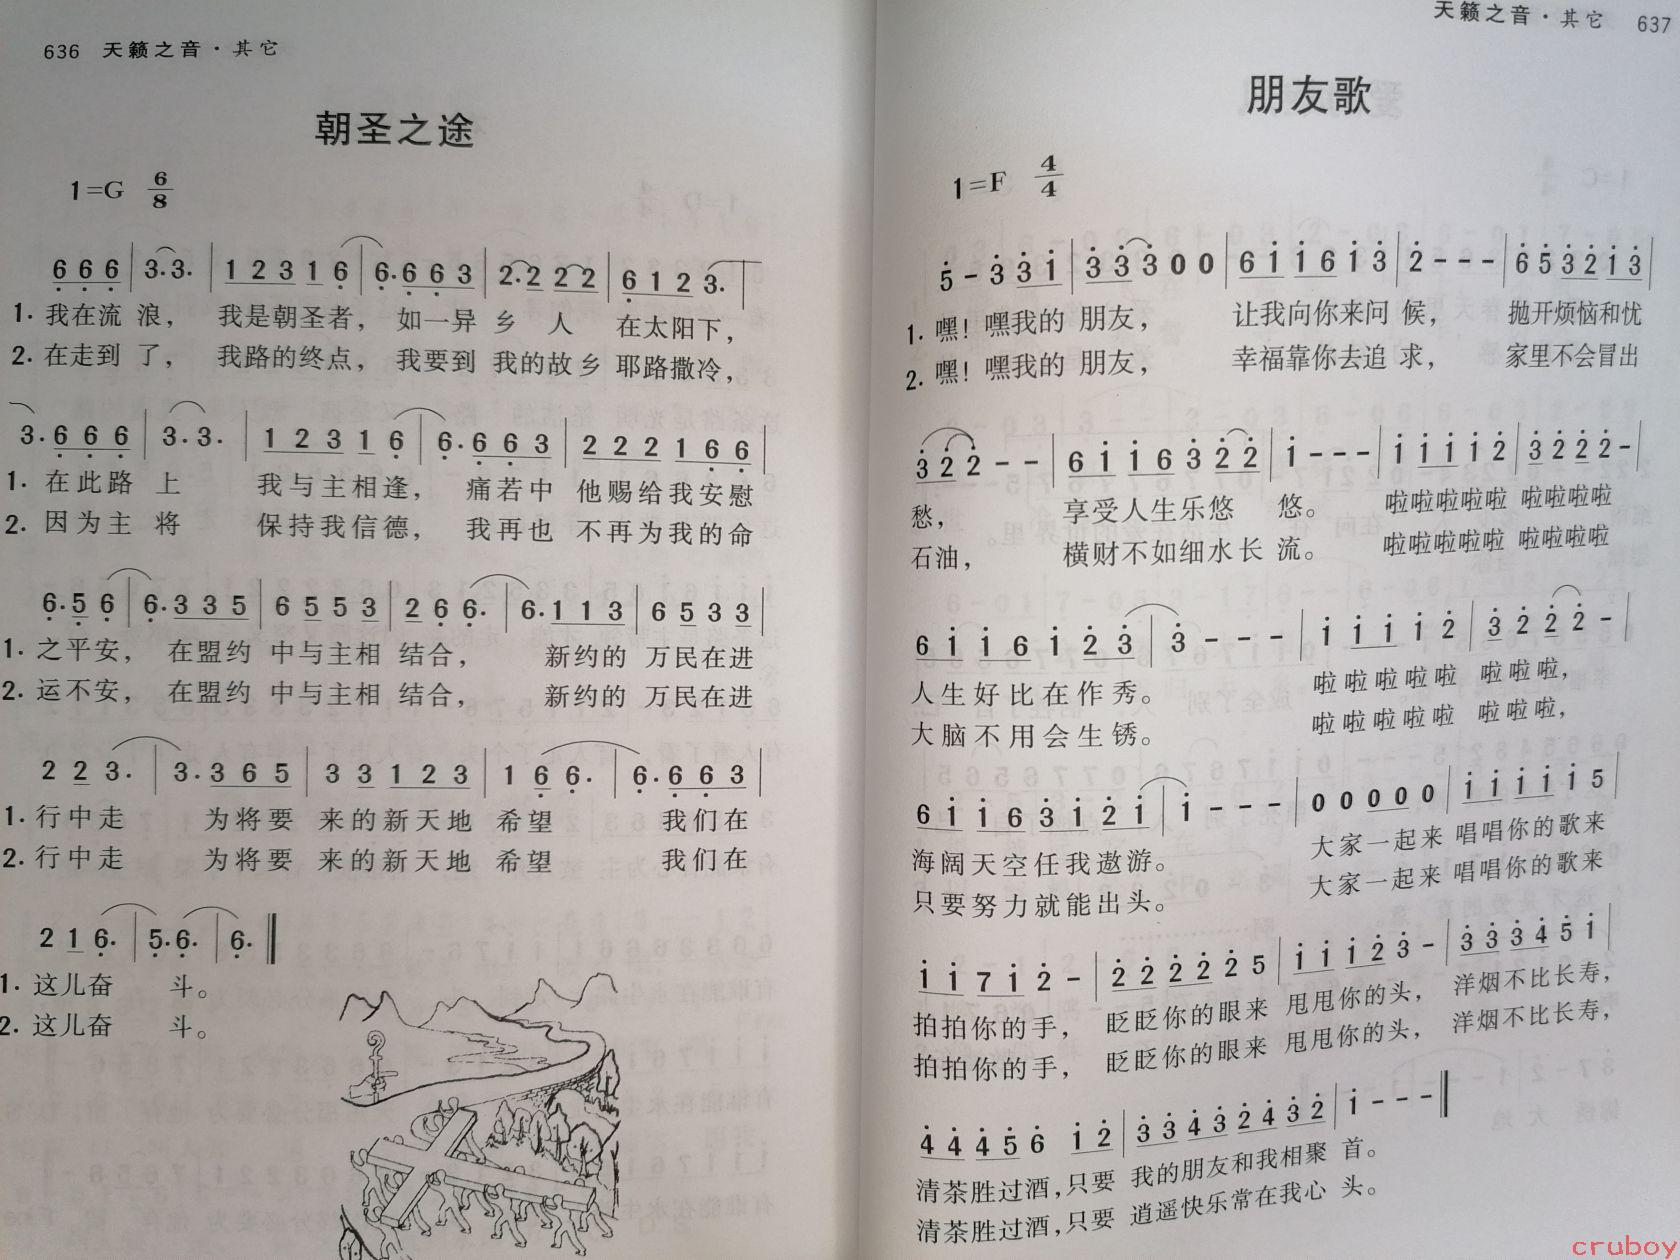 636 天籁之音·其它
朝圣之途
1=G 6/8
6 6 6 | 3. 3. | 1 2 3 1 6 | 6. 6 6 3 | 2. 2 2 2 | 6 1 2 3. |
1. 我在流 浪， 我是朝圣者， 如一异 乡 人 在太阳下，
2. 在走到 了， 我路的终点， 我要到 我的故乡 耶路撒冷，
3. 6 6 6 | 3. 3. | 1 2 3 1 6 | 6. 6 6 3 | 2 2 2 1 6 6 |
1. 在此路 上 我与主相逢， 痛若中 他赐给我安慰
2. 因为主 将 保持我信德， 我再也 不再为我的命
6. 5 6 | 6. 3 3 5 | 6 5 5 3 | 2 6 6. | 6. 1 1 3 | 6 5 3 3 |
1. 之平安， 在盟约 中与主相 结合， 新约的 万民在进
2. 运不安， 在盟约 中与主相 结合， 新约的 万民在进
2 2 3. | 3. 3 6 5 | 3 3 1 2 3 | 1 6 6. | 6. 6 6 3 |
1. 行中走 为将要 来的新天地 希望 我们在
2. 行中走 为将要 来的新天地 希望 我们在
2 1 6. | 5. 6. | 6. ‖
1. 这儿奋 斗。
2. 这儿奋 斗。
天籁之音·其它 637
朋友歌
1=F 4/4
5 - 3 3 1 | 3 3 3 0 0 | 6 1 1 6 1 3 | 2 - - - | 6 5 3 2 1 3 |
1. 嘿！嘿我的 朋友， 让我向你来问 候， 抛开烦恼和忧
2. 嘿！嘿我的 朋友， 幸福靠你去追 求， 家里不会冒出
3 2 2 - - | 6 1 1 6 3 2 2 | 1 - - - | 1 1 1 1 2 | 3 2 2 2 - |
愁， 享受人生乐悠 悠。 啦啦啦啦啦 啦啦啦啦
石油， 横财不如细水长 流。 啦啦啦啦啦 啦啦啦啦
6 1 1 6 1 2 3 | 3 - - - | 1 1 1 1 2 | 3 2 2 2 - |
人生好比在作秀。 啦啦啦啦啦 啦啦啦，
大脑不用会生锈。 啦啦啦啦啦 啦啦啦，
6 1 1 6 3 1 2 1 | 1 - - - | 0 0 0 0 0 | 1 1 1 1 1 5 |
海阔天空任我遨游。 大家一起来 唱唱你的歌来
只要努力就能出头。 大家一起来 唱唱你的歌来
1 1 7 1 2 - | 2 2 2 2 2 5 | 1 1 1 2 3 - | 3 3 3 4 5 1 |
拍拍你的手， 眨眨你的眼来 甩甩你的头， 洋烟不比长寿，
拍拍你的手， 眨眨你的眼来 甩甩你的头， 洋烟不比长寿，
4 4 4 5 6 1 2 | 3 3 4 3 2 4 3 2 | 1 - - - ‖
清茶胜过酒，只要 我的朋友和我相聚 首。
清茶胜过酒，只要 逍遥快乐常在我心 头。
cruboy